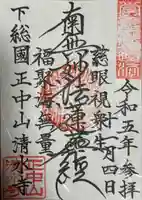 令和五年
月四日
参拝
慈眼視衆生
南無妙法蓮華経
福聚海無量
下総國正中山清水寺